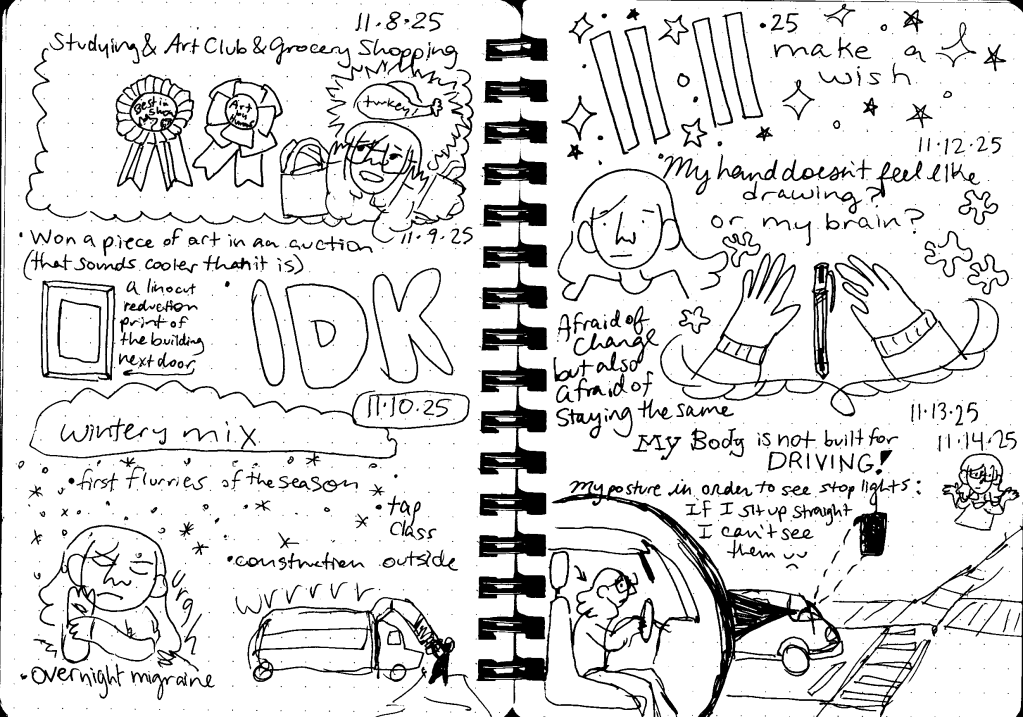 11.8.25
Studying & Art Club & Grocery Shopping
Best in
Show
Art
turkey
11.9.25
• Won a piece of art in an auction
(that sounds cooler than it is)
a linocut
reduction
print of
the building
next door
• IDK
11.10.25
wintery mix
• first flurries of the season
• tap
class
• construction outside
urgh
wrrrrr
• overnight migraine
11 11 .25
make a
wish
11.12.25
• My hand doesn't feel like
drawing?
or my brain?
Afraid of
Change
but also
afraid of
Staying the same
11.13.25
11.14.25
My Body is not built for
DRIVING!
My posture in order to see stop lights:
If I sit up straight
I can't see
them